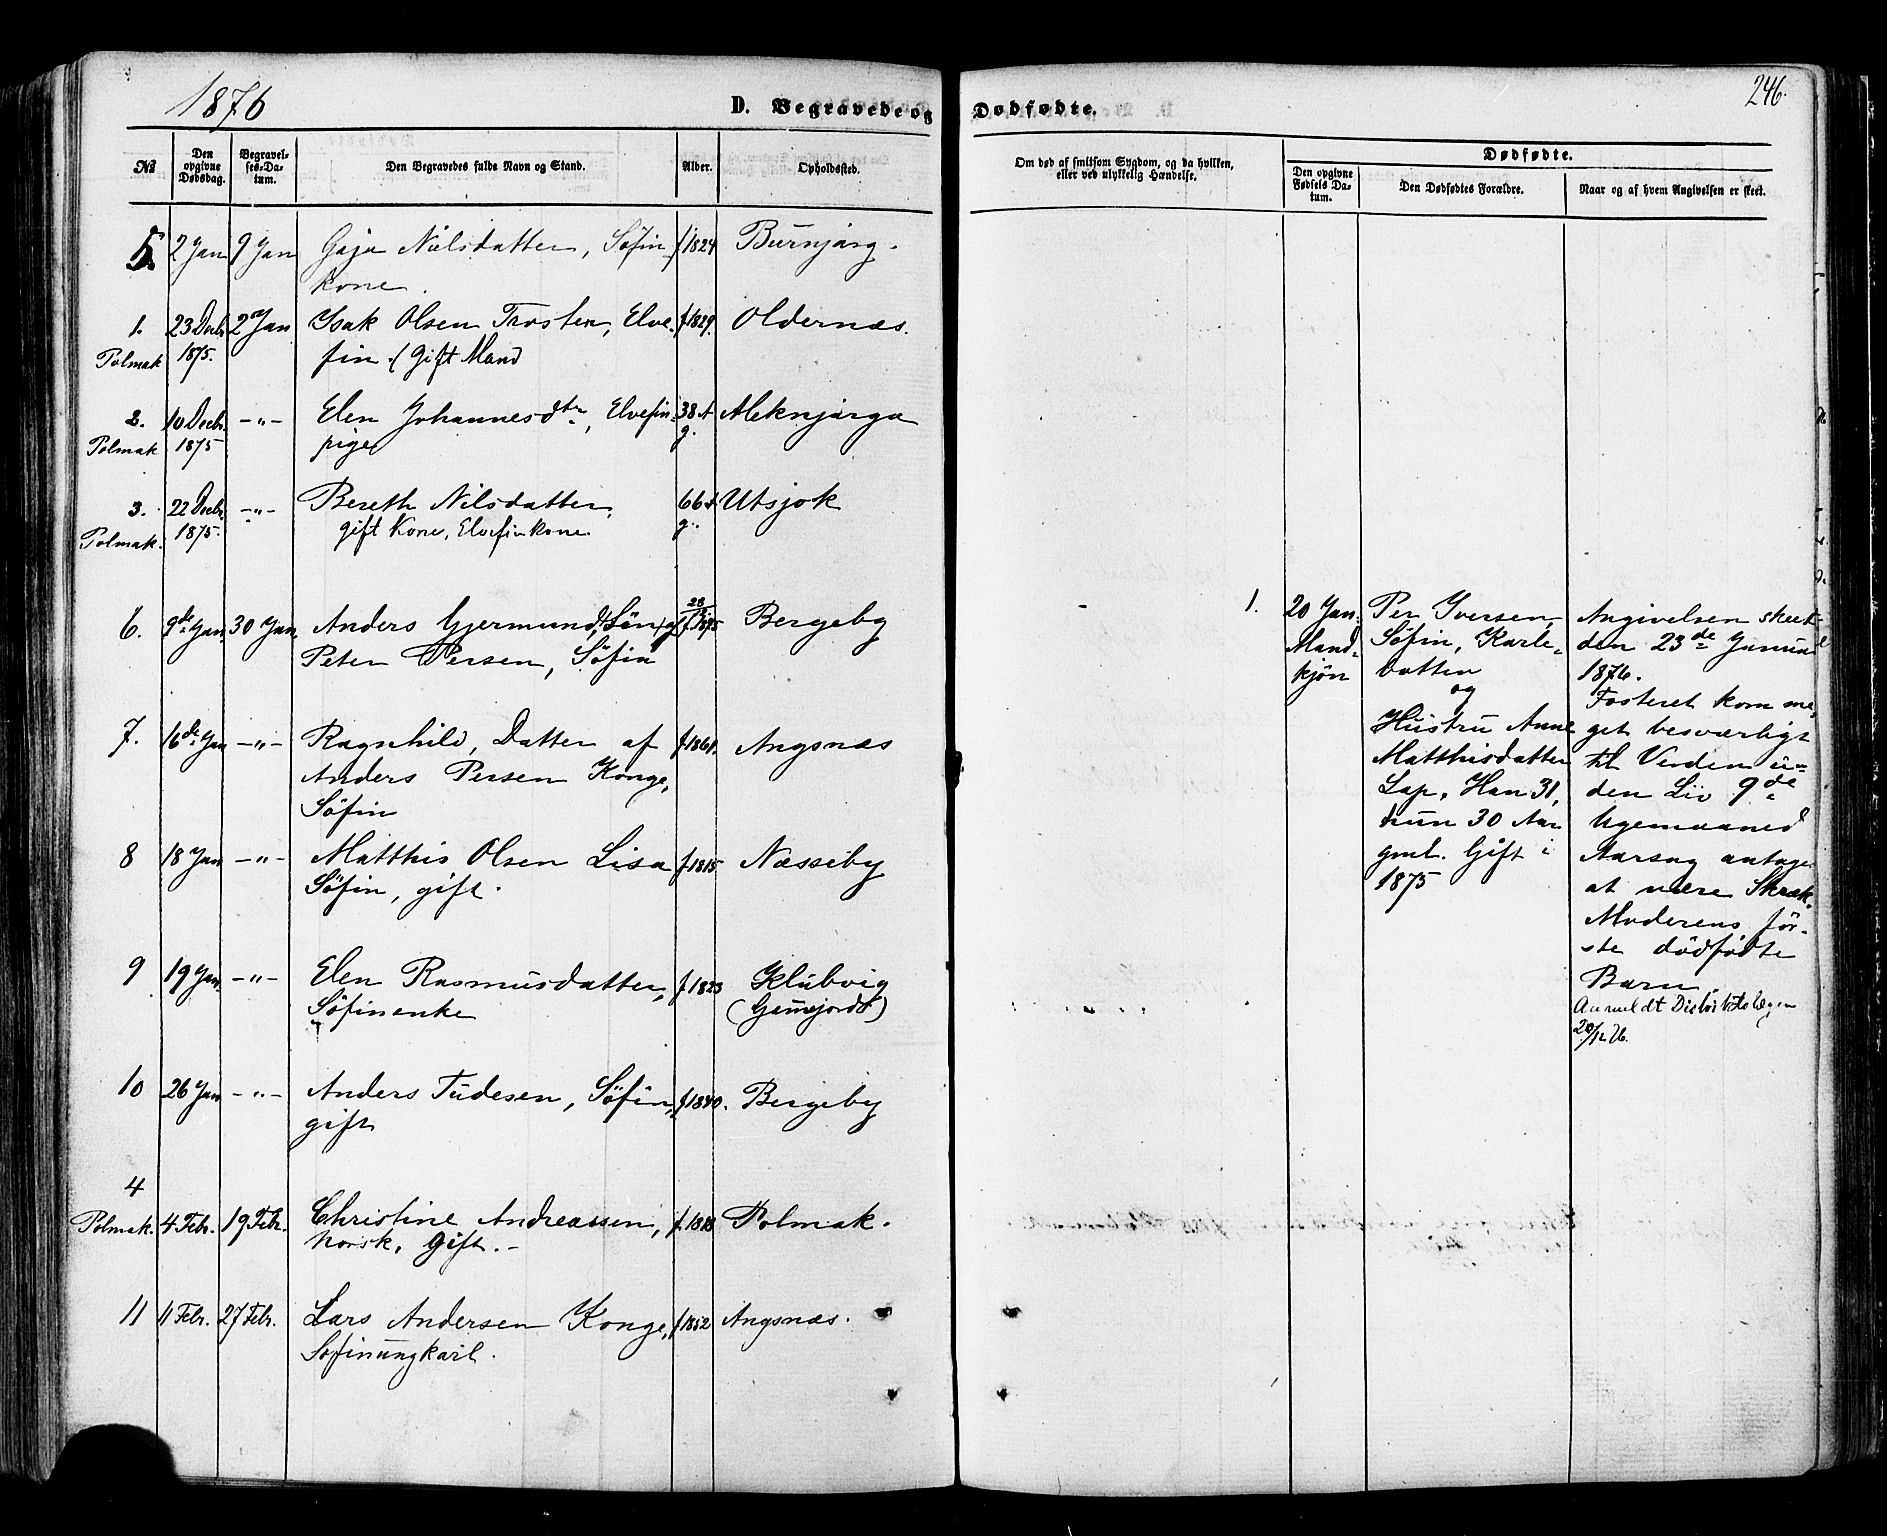 1876
D. Begravede og
№
Den opgivne Dødsdag.
Begravelses-Datum.
Den Begravedes fulde Navn og Stand.
Alder.
Opholdssted.
5. 2 Jan 9 Jan Gaja Nielsdatter, Søfin- f 1824 Burnjarg.
kone.
1. 23 Decbr. 2 Jan Isak Olsen Trosten, Elve- f 1829. Oldernæs.
Polmak 1875. fin. (Gift Mand
2. 10 Decbr. -"- Elen Johannesdtr, Elvefin- 38 A Aleknjarga
Polmak 1875 pige g.
3. 22 Decbr. -"- Bereth Nilsdatter, 66 A Utsjok
Polmak. 1875. gift Kone, Elvefinkone. g.
6. 9de Jan 30 Jan Anders Gjermund, Søn af 1875 Bergeby
Peter Persen, Søfin
7. 16de Jan -"- Ragnhild, Datter af f 1861. Angsnæs
Anders Persen Konge,
Søfin
8 18 Jan -"- Matthis Olsen Lisa f 1815 Næsseby
Søfin, gift.
9 19 Jan. -"- Elen Rasmusdatter, f 1823 Klubvig
Søfinenke
10 26 Jan -"- Anders Tudesen, Søfin, f 1840. Bergeby
gift
4
Polmak. 4 Febr. 19 Febr. Christine Andreassen, f. 1818 Polmak.
Norsk. Gift. -
11 11 Febr. 27 Febr. Lars Andersen Konge, f 1852 Angsnæs.
Søfinungkarl.
Dødfødte.
246.
Om død af smitsom Sygdom, og da hvilken,
eller ved ulykkelig Hændelse.
Dødfødte.
Den opgivne Fødsels Datum.
Den Dødfødtes Forældre.
Naar og af hvem Angivelsen er skeet.
1. 20 Jan. Per Iversen, Angivelsen skeet
Mand- Søfin, Karle- den 23de Januar
kjøn botten 1876.
og Fosteret kom me-
Hustru Anne get besværligt
Matthisdatter til Verden u-
Lap, Han 31, den Liv 9de
hun 30 Aar Ugemaaned
gml. Gift i Aarsag antages
1875 at være Skræk.
Moderens før-
ste dødfødte
Barn
Anmeldt Distriktslægen